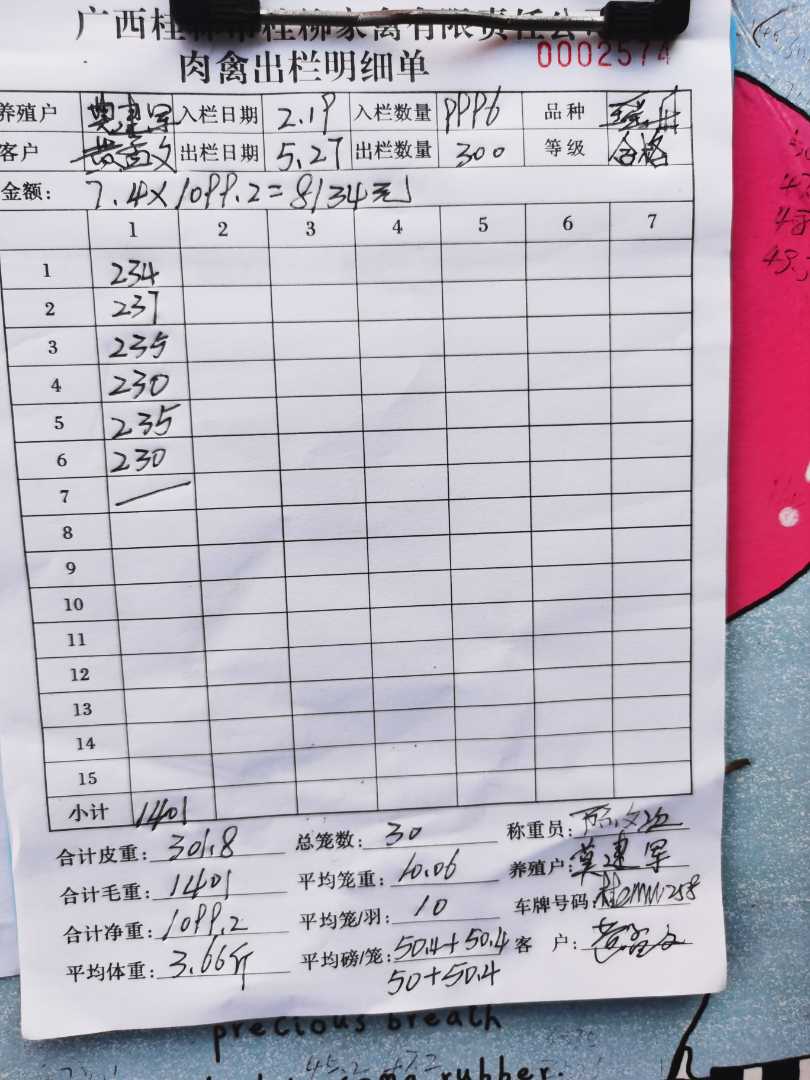 广西桂林市桂柳家禽有限责任公司
肉禽出栏明细单 0002574
养殖户 莫建军 入栏日期 2.19 入栏数量 9996 品种
客户 出栏日期 5.27 出栏数量 300 等级 合格
金额: 7.4×1099.2=8134元
1 2 3 4 5 6 7
1 234
2 237
3 235
4 230
5 235
6 230
7
8
9
10
11
12
13
14
15
小计 1401
合计皮重: 301.8 总笼数: 30 称重员:
合计毛重: 1401 平均笼重: 10.06 养殖户: 莫建军
合计净重: 1099.2 平均笼/羽: 10 车牌号码:
平均体重: 3.66斤 平均磅/笼: 50.4+50.4 客 户:
50+50.4
precious breath
some rubber.